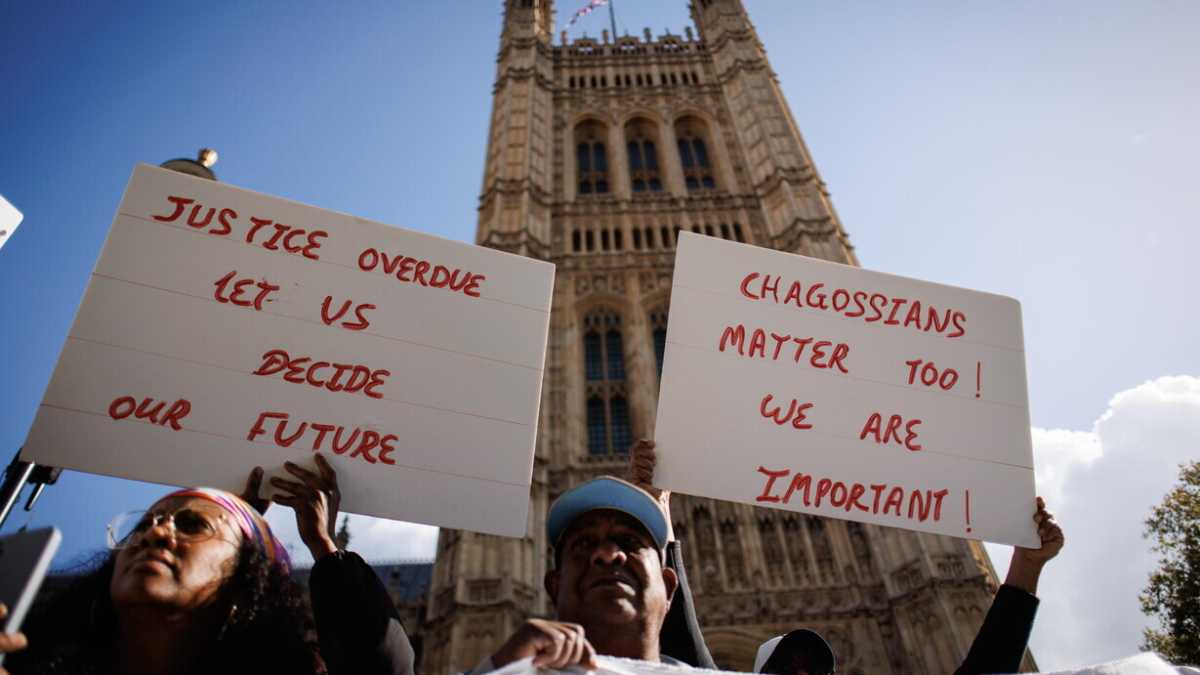 JUSTICE OVERDUE
LET US
DECIDE
OUR FUTURE
CHAGOSSIANS
MATTER TOO!
WE ARE
IMPORTANT!